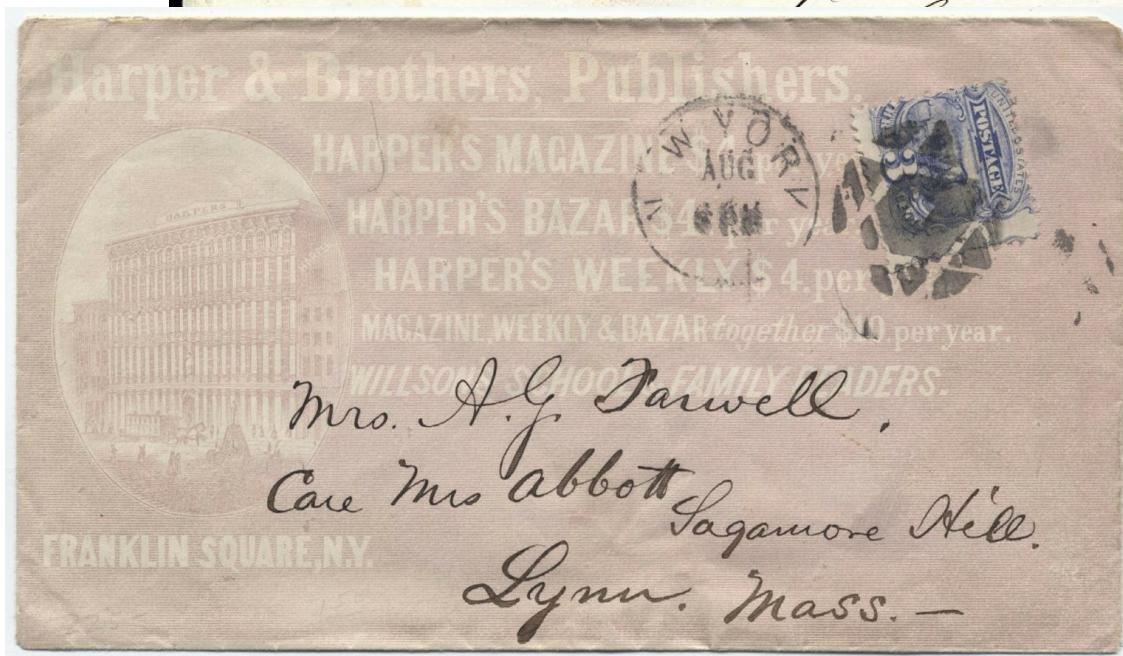 Harper & Brothers, Publishers.
HARPER'S MAGAZINE $4. per
HARPER'S BAZAR $4 per
HARPER'S WEEKLY $4. per
MAGAZINE, WEEKLY & BAZAR together $10 per year.
WILLSON'S SCHOOL & FAMILY READERS.
HARPER
FRANKLIN SQUARE, N.Y.
N W YORK
AUG
UNITED STATES
POSTAGE
3
Mrs. A. G. Farwell,
Care Mrs Abbott
Sagamore Hill.
Lynn. Mass. —